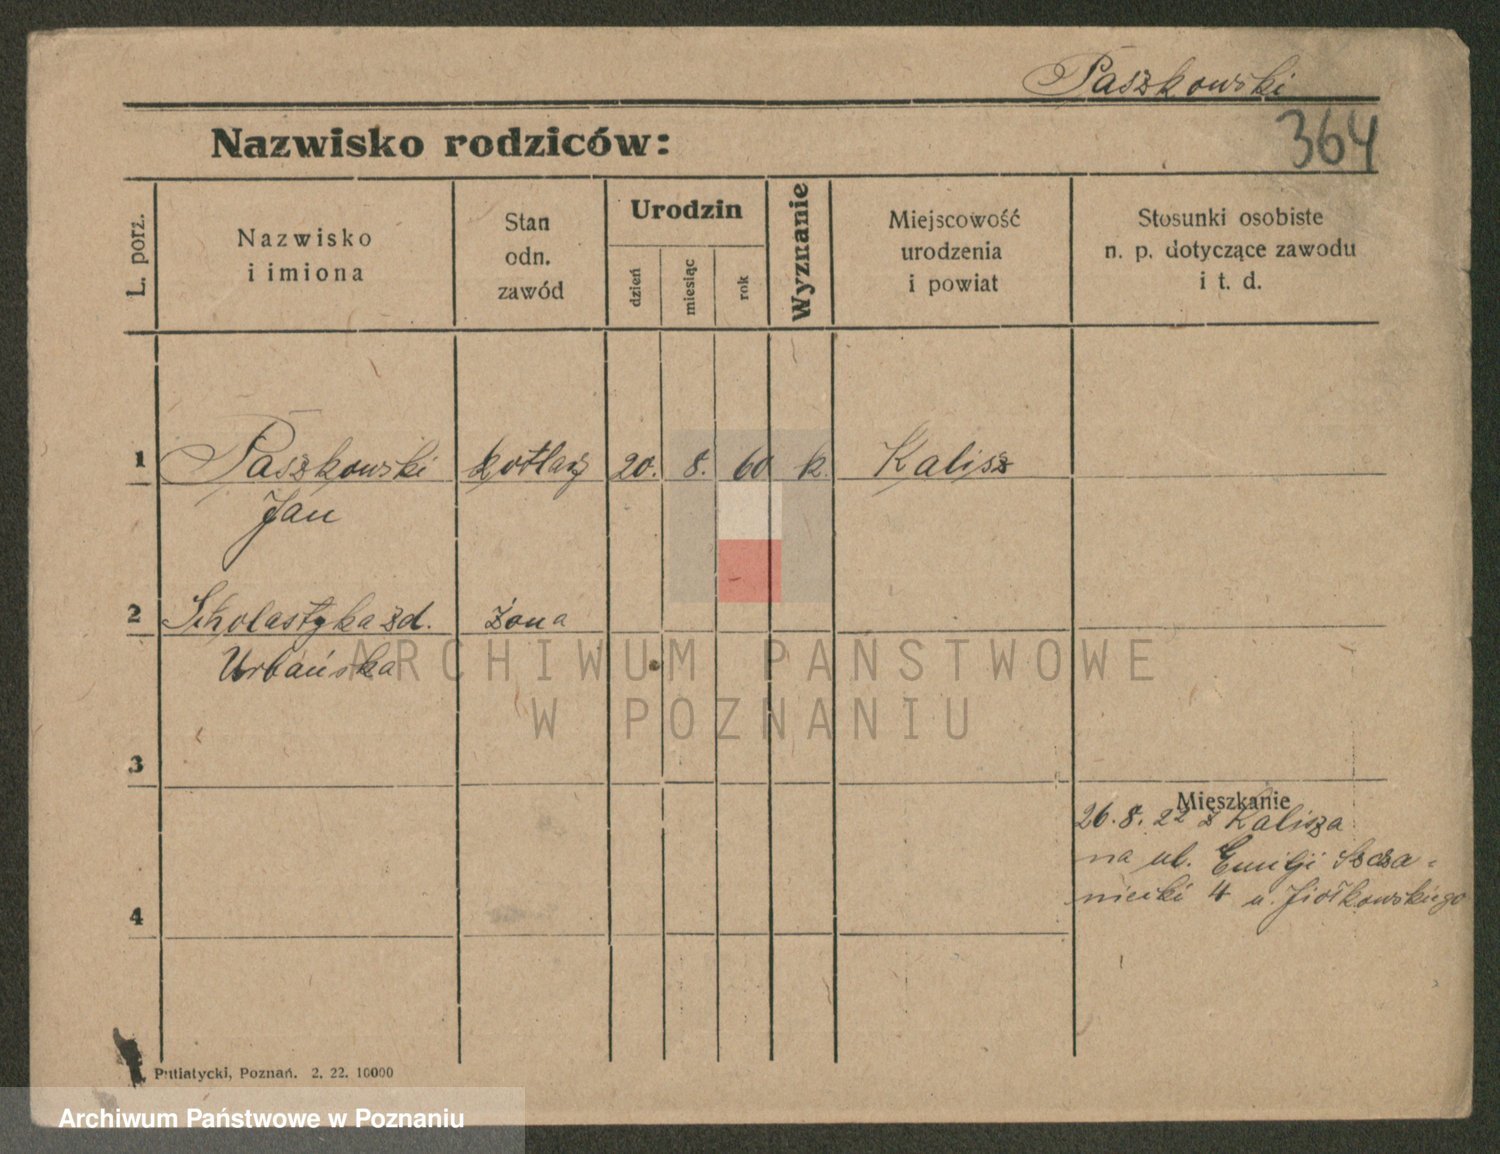 Paszkowski
364
Nazwisko rodziców:
L. porz.
Nazwisko
i imiona
Stan
odn.
zawód
Urodzin
dzień
miesiąc
rok
Wyznanie
Miejscowość
urodzenia
i powiat
Stosunki osobiste
n. p. dotyczące zawodu
i t. d.
1 Paszkowski kotlarz 20. 8. 60 k. Kalisz
Jan
2 Scholastyka zd. żona
Urbańska
3
Mieszkanie
26. 8. 22 z Kalisza
na ul. Emilji Scza-
niecki 4 u. Jiołkowskiego
4
Putiatycki, Poznań. 2. 22. 10000
ARCHIWUM PAŃSTWOWE
W POZNANIU
Archiwum Państwowe w Poznaniu